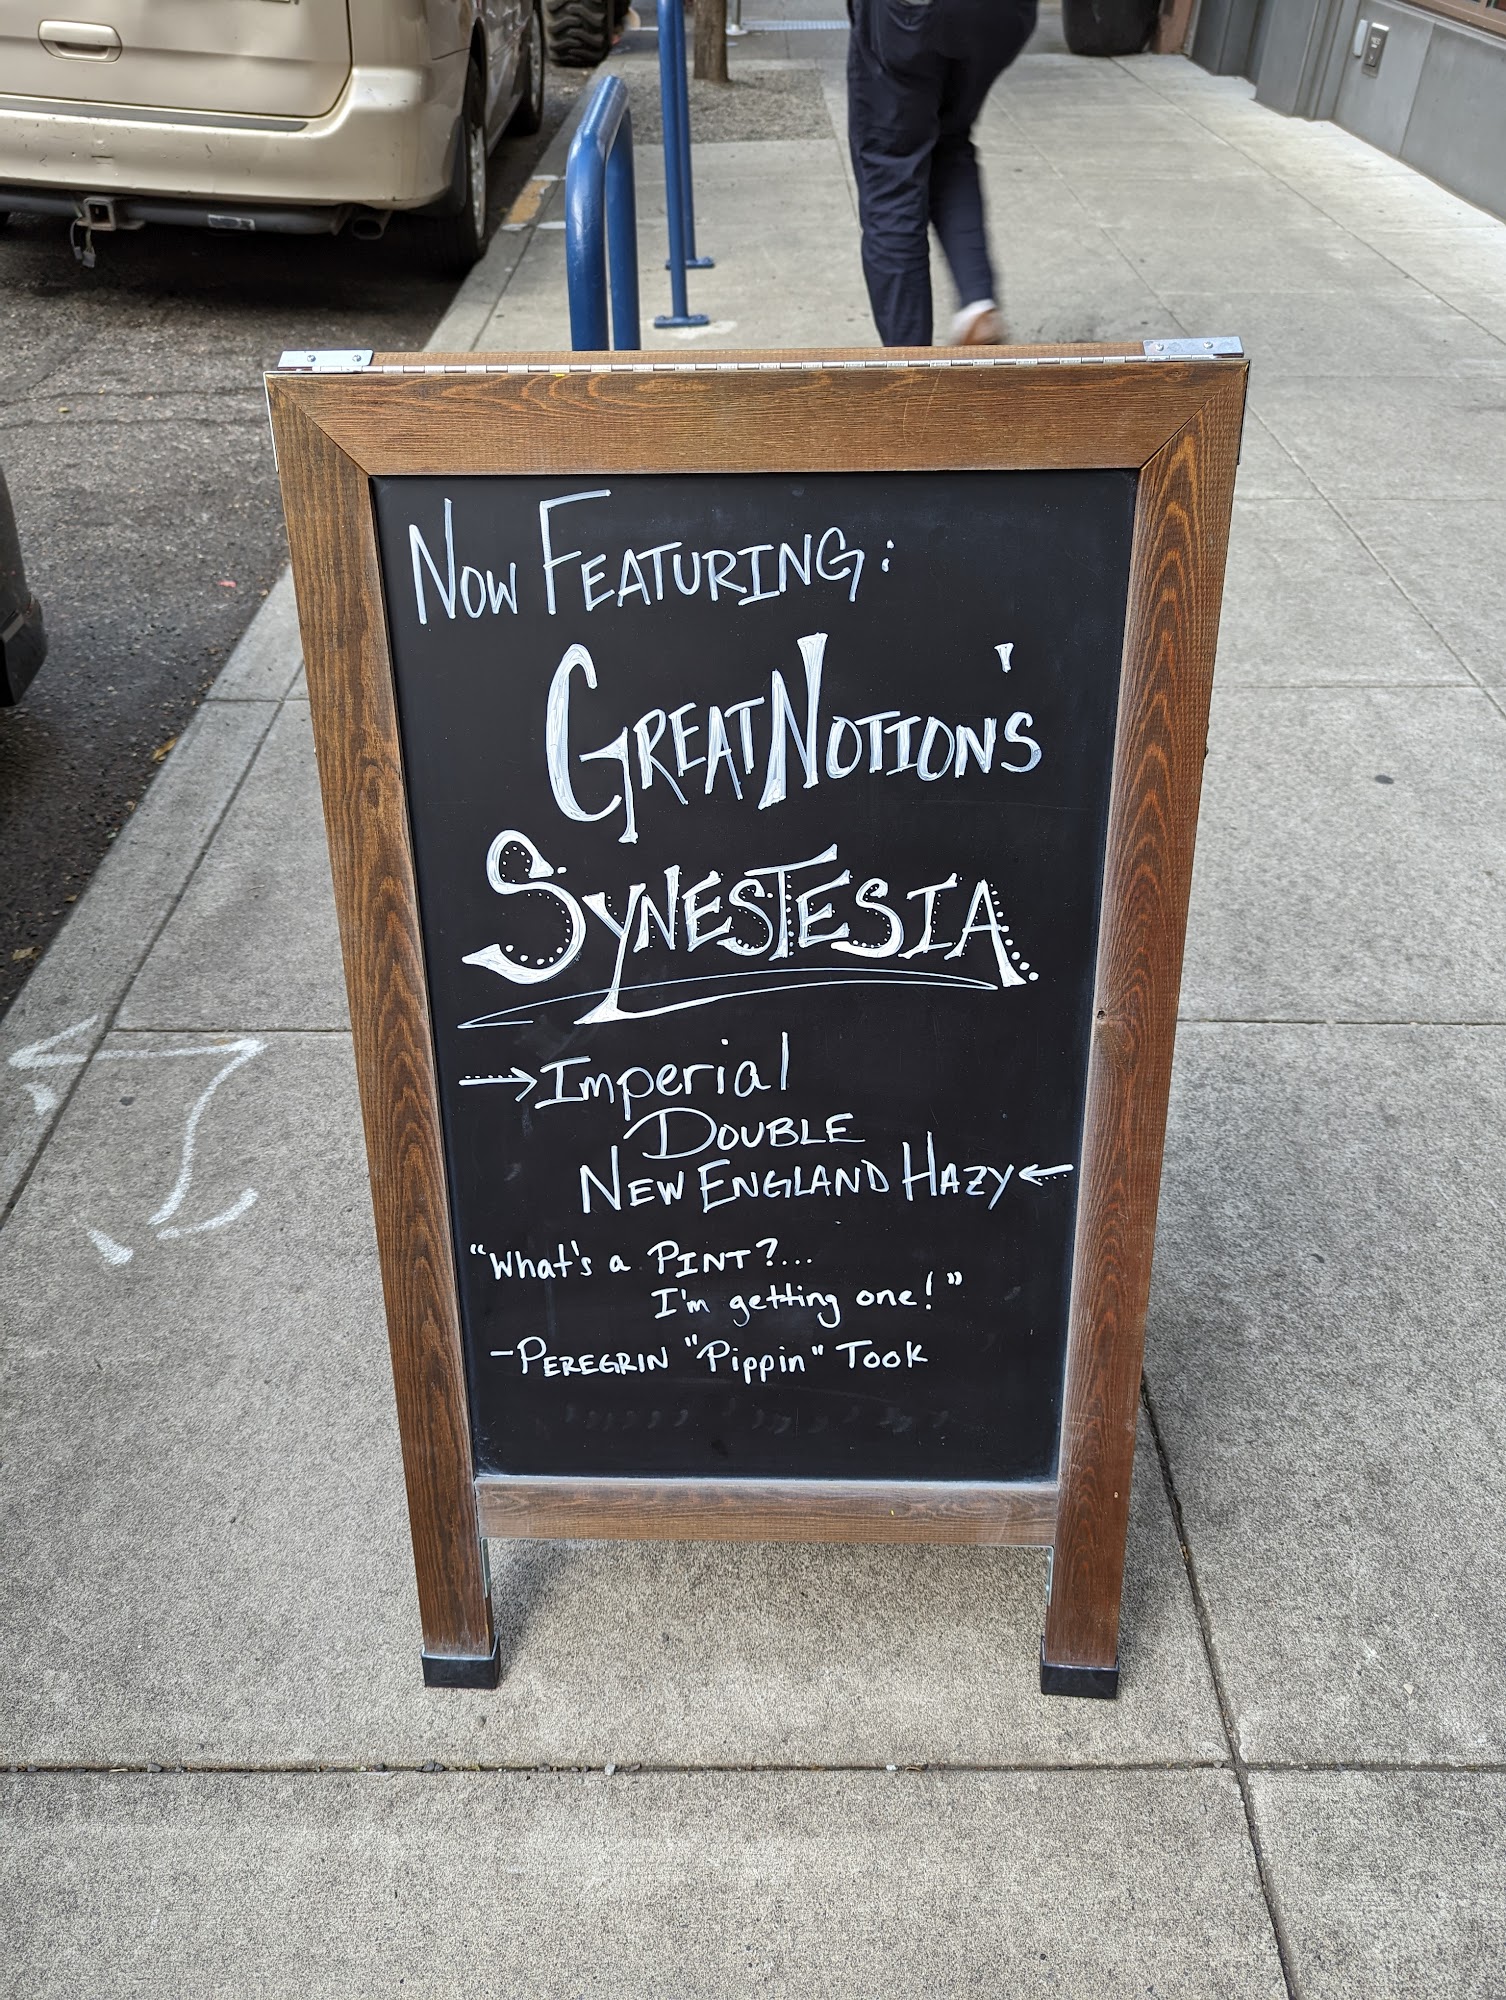 Now Featuring:
Great Notion's
Synestesia
→Imperial
Double
New England Hazy←
"What's a Pint?...
I'm getting one!"
-Peregrin "Pippin" Took